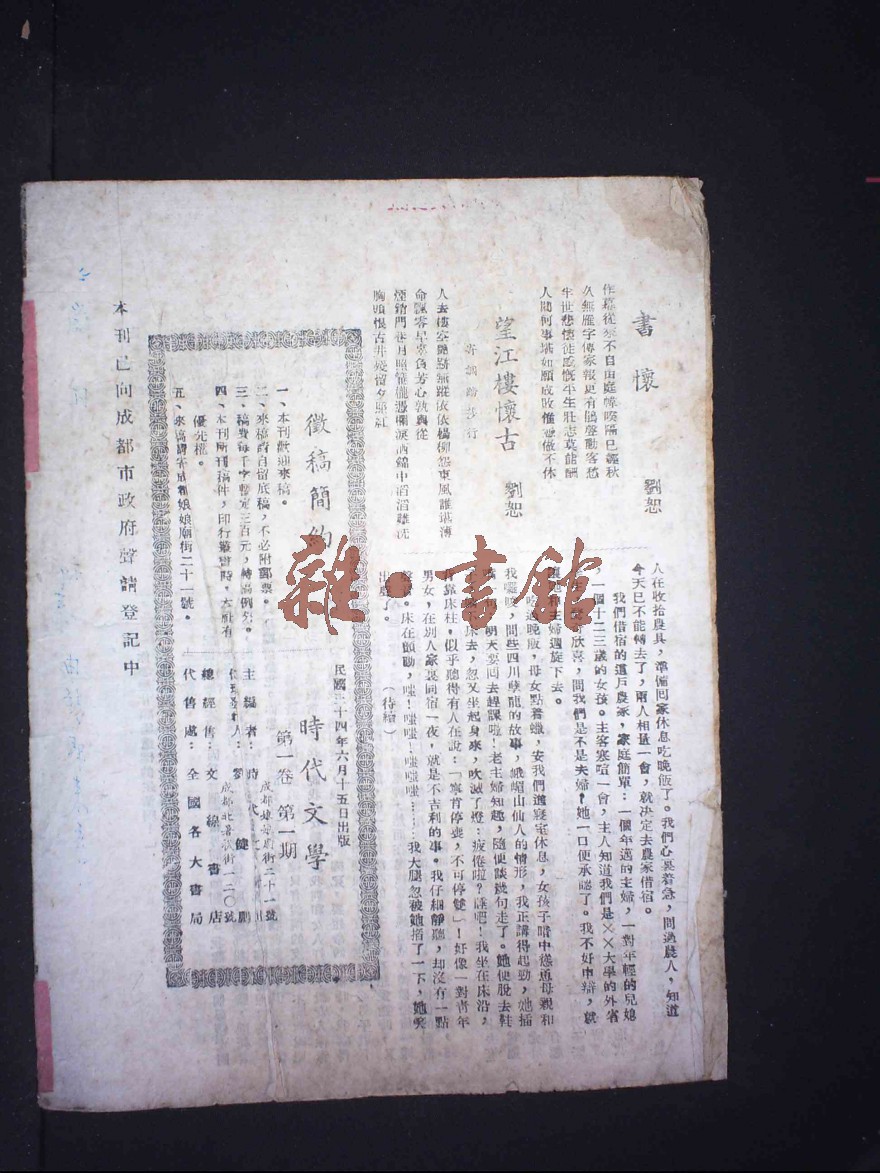 書懷
劉恕
作嘉從來不自由庭幃喚隔已經秋
久無雁字傳家報更有鵑聲動客愁
半世悲懷徒感慨平生壯志莫能酬
人間何事堪如願成敗惟憑做不休
望江樓懷古
劉恕
人去樓空艷跡無蹤依依楊柳怨東風誰堪薄
命飄零早辜負芳心孰與從
胸頭恨古井殘留夕照紅
八在收拾農具，準備回家休息吃晚飯了。我們心裏着急，問過農人，知道
今天已不能轉去了，兩人相量一會，就决定去農家借宿。
我們借宿的這戶農家，家庭簡單：一個年邁的主婦，一對年輕的兒媳
一個十二三歲的女孩。主客寒暄一會，主人知道我們是××大學的外省
欣喜，問我們是不是夫婦？她一口便承認了。我不好申辯，就
和主婦週旋下去。
吃過晚飯，母女點着蠟，安我們進寢室休息，女孩子暗中
我囉唆，問些四川孽龍的故事，峨嵋山仙人的情形，我正講得起勁，她插
明天要回去趕課啦！老主婦知趣，隨便談幾句走了。她便脫去鞋
床去，忽又坐起身來，吹滅了燈：疲倦啦？睡吧！我坐在床沿，
背靠床柱，似乎聽得有人在說：「寧肯停喪，不可停雙」！好像一對青年
男女，在別人家裏同宿一夜，就是不吉利的事。我仔細靜聽，却沒有一點
床在顫動，嗤！嗤嗤！嗤嗤嗤……我大腿忽被她掐了一下，她喫
出聲了。
（待續）
徵稿簡約
一、本刊歡迎來稿。
二、來稿請自留底稿，不必附郵票。
三、稿費每千字暫定三百元，轉載例外。
四、本刊所刊稿件，印行叢書時，本社有
優先權。
五、來稿請寄成都娘娘廟街二十一號。
民國三十四年六月十五日出版
時代文學
第一卷 第一期
主編者：時代文
成都娘娘廟街二十一號
人：劉健鵬
成都北暑襪街一二〇號
總經售：文線書店
代售處：全國各大書局
本刊已向成都市政府聲請登記中
雜·書館